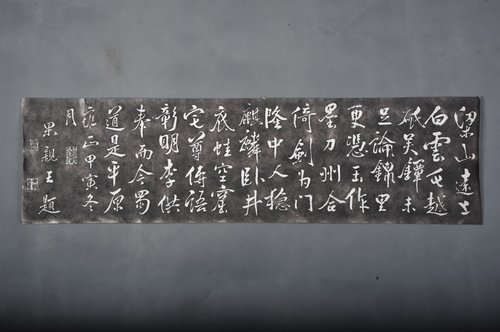 梁山遠上
白雲屯越
砥吳鐔未
足論錦里
更憑玉作
壘刀州合
倚劍為門
隆中人穩
麒麟臥井
底蛙空窟
宅尊傳語
彰明李供
奉而今蜀
道是平原
雍正甲寅冬
月
果親王題